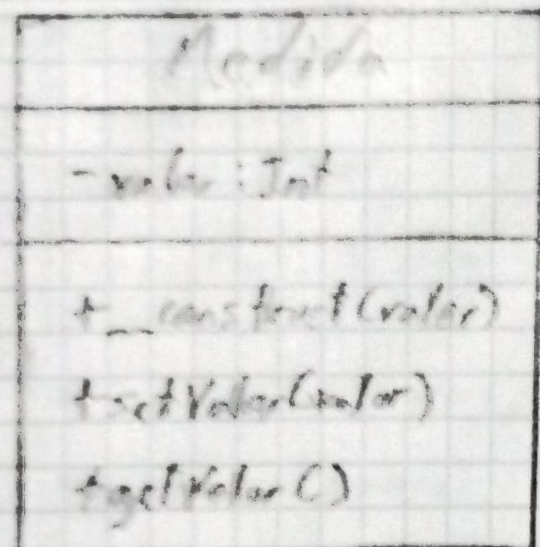 Medida
- valor : Int
+ __construct(valor)
+ setValor(valor)
+ getValor()